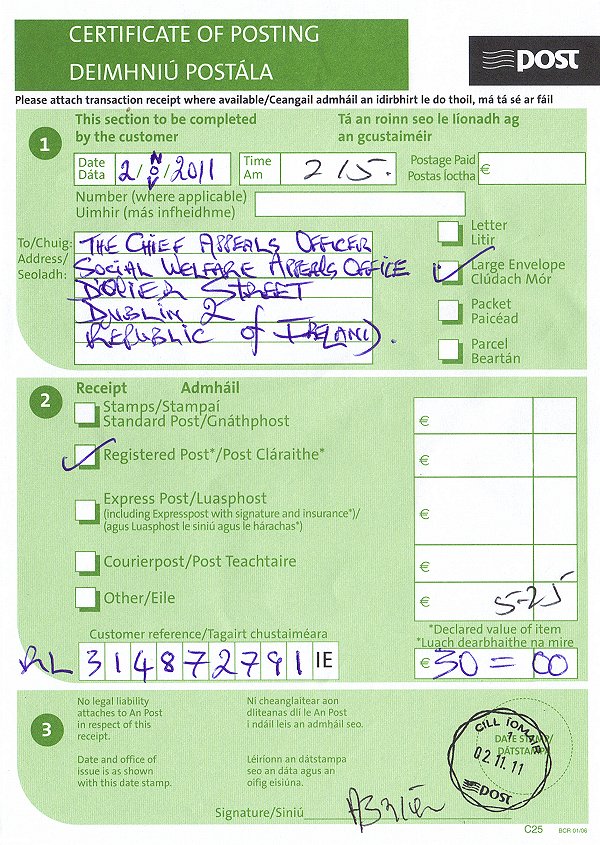 CERTIFICATE OF POSTING
DEIMHNIÚ POSTÁLA
post
Please attach transaction receipt where available/Ceangail admháil an idirbhirt le do thoil, má tá sé ar fáil
1
This section to be completed
by the customer
Tá an roinn seo le líonadh ag
an gcustaiméir
Date
Dáta
2/NOV/2011
Time
Am
215.
Postage Paid
Postas Íoctha
€
Number (where applicable)
Uimhir (más infheidhme)
To/Chuig:
Address/
Seoladh:
THE CHIEF APPEALS OFFICER
SOCIAL WELFARE APPEALS OFFICE
DOVIER STREET
DUBLIN 2
REPUBLIC of IRELAND.
Letter
Litir
Large Envelope
Clúdach Mór
Packet
Paicéad
Parcel
Beartán
2
Receipt Admháil
Stamps/Stampaí
Standard Post/Gnáthphost
€
Registered Post*/Post Cláraithe*
€
Express Post/Luasphost
(including Expresspost with signature and insurance*)/
(agus Luasphost le siniú agus le hárachas*)
€
Courierpost/Post Teachtaire
€
Other/Eile
€ 5-25
*Declared value of item
*Luach dearbhaithe na míre
Customer reference/Tagairt chustaiméara
RL 314872791 IE
€ 30 = 00
3
No legal liability
attaches to An Post
in respect of this
receipt.
Date and office of
issue is as shown
with this date stamp.
Ní cheanglaítear aon
dliteanas dlí le An Post
i ndáil leis an admháil seo.
Léiríonn an dátstampa
seo an dáta agus an
oifig eisiúna.
DATE STAMP/
DÁTSTAMPA
CILL ÍOMAR
1
02.11.11
post
Signature/Siniú
C25
BCR 01/06